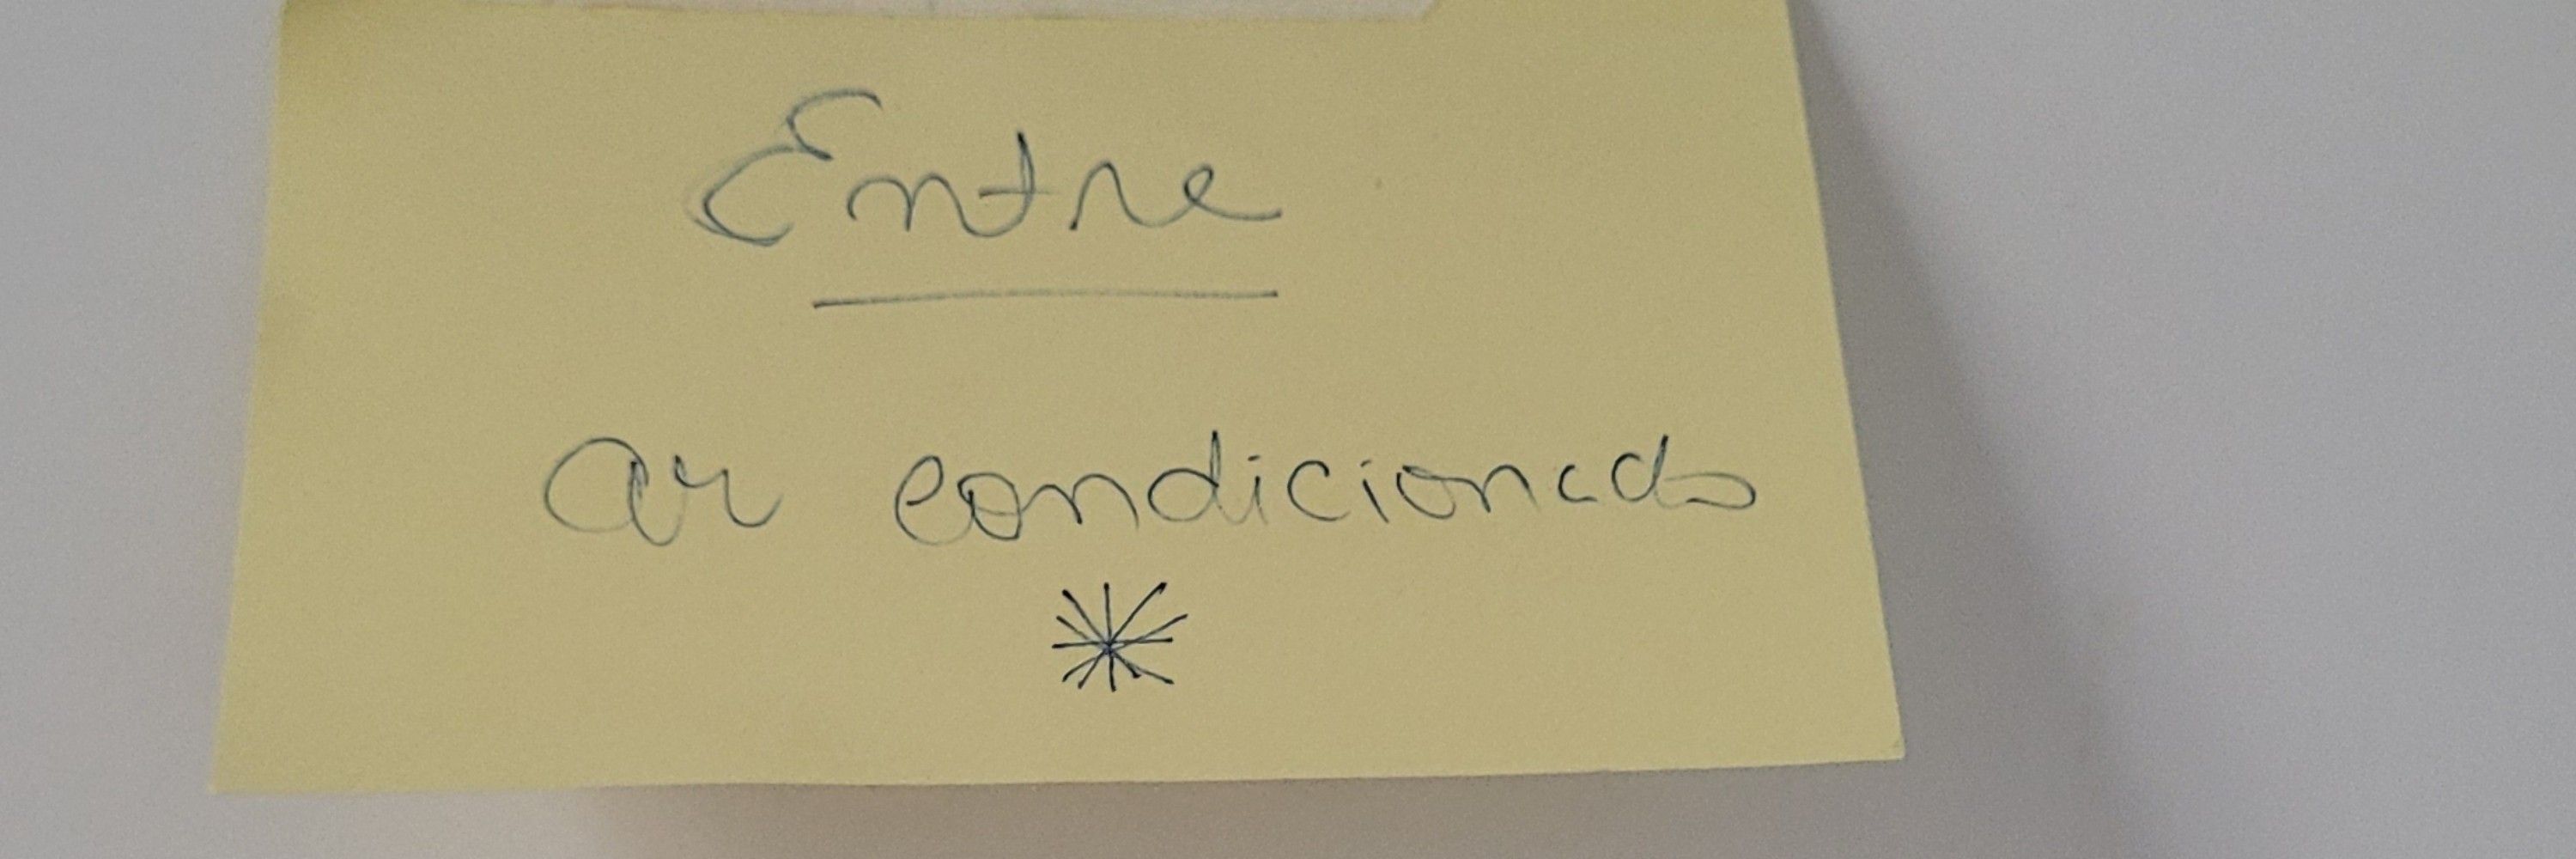 Entre
ar condicionado